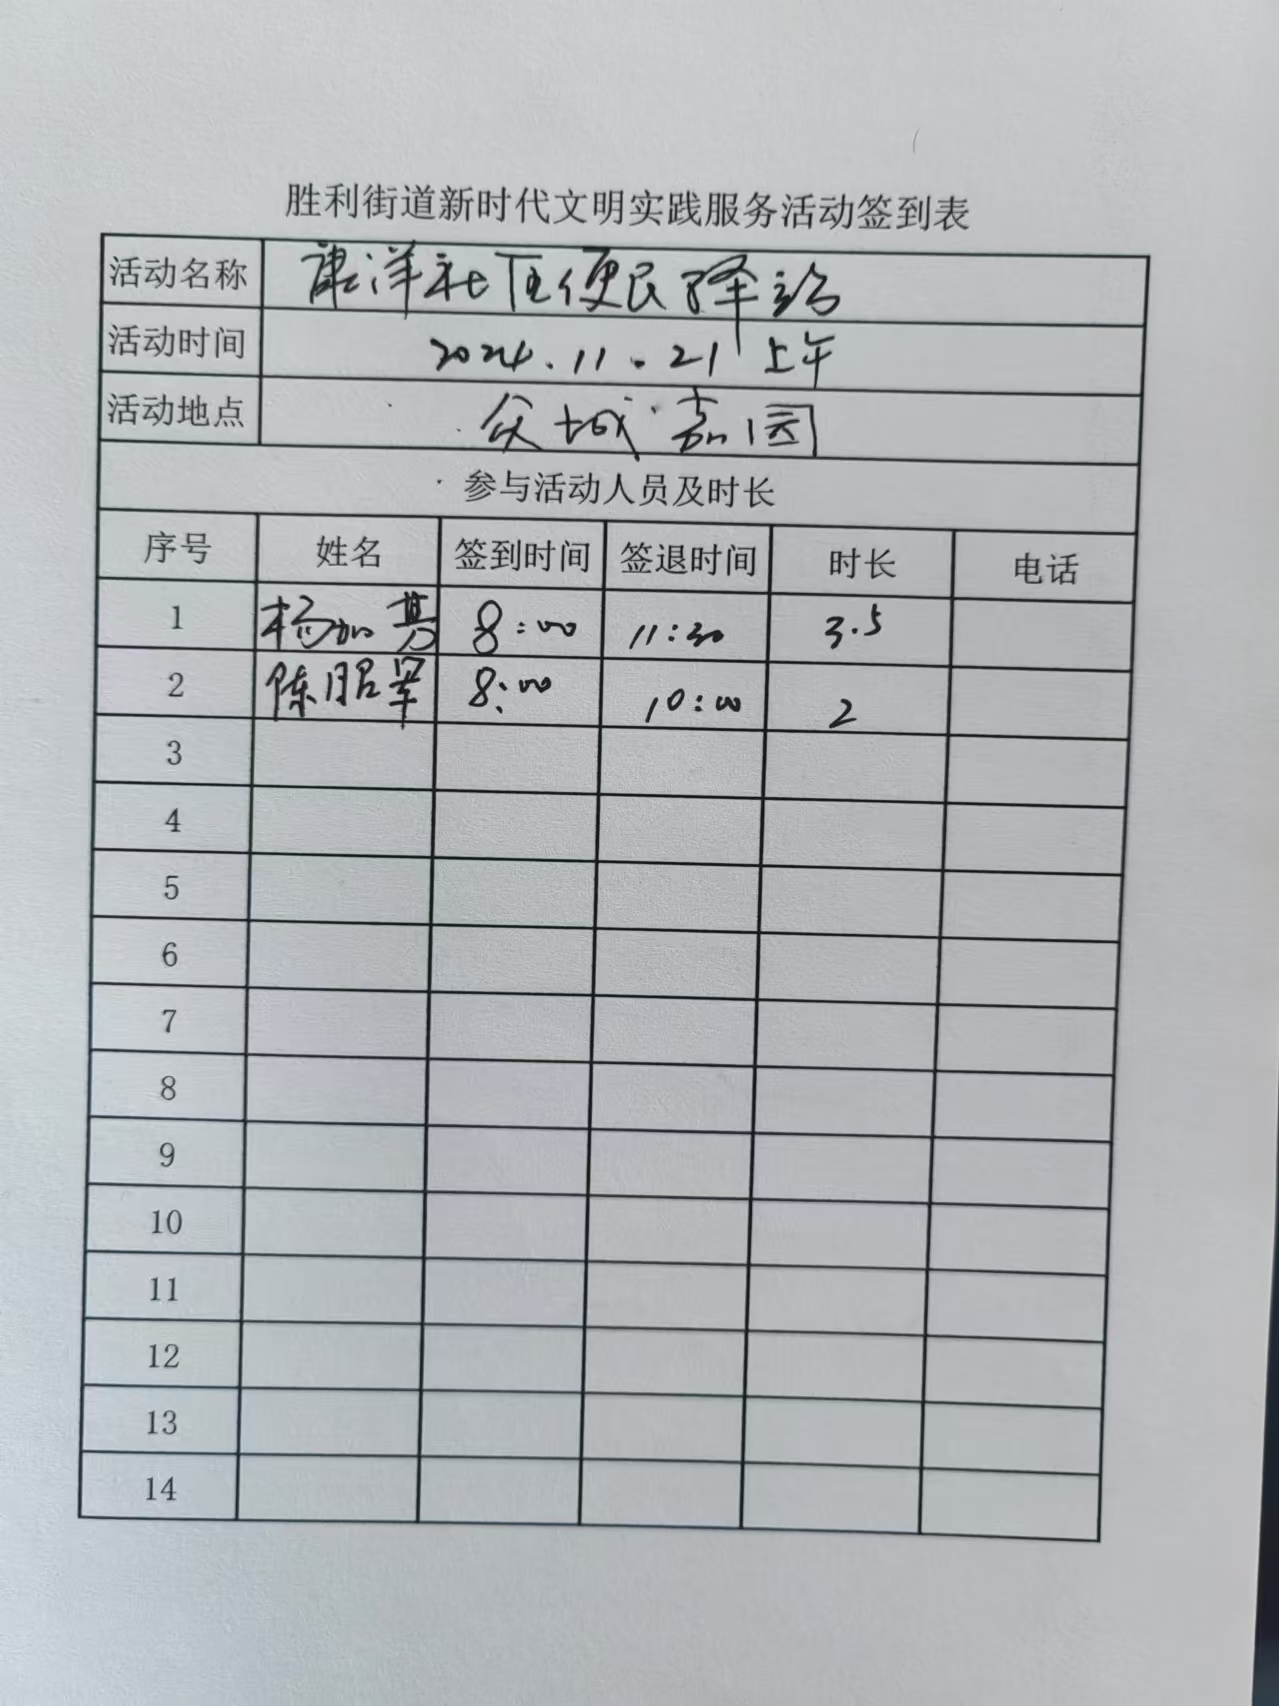 胜利街道新时代文明实践服务活动签到表
活动名称 康洋社区便民驿站
活动时间 2024.11.21 上午
活动地点 众城嘉园
参与活动人员及时长
序号 姓名 签到时间 签退时间 时长 电话
1 杨加 8:00 11:30 3.5
2 陈昭 8:00 10:00 2
3
4
5
6
7
8
9
10
11
12
13
14